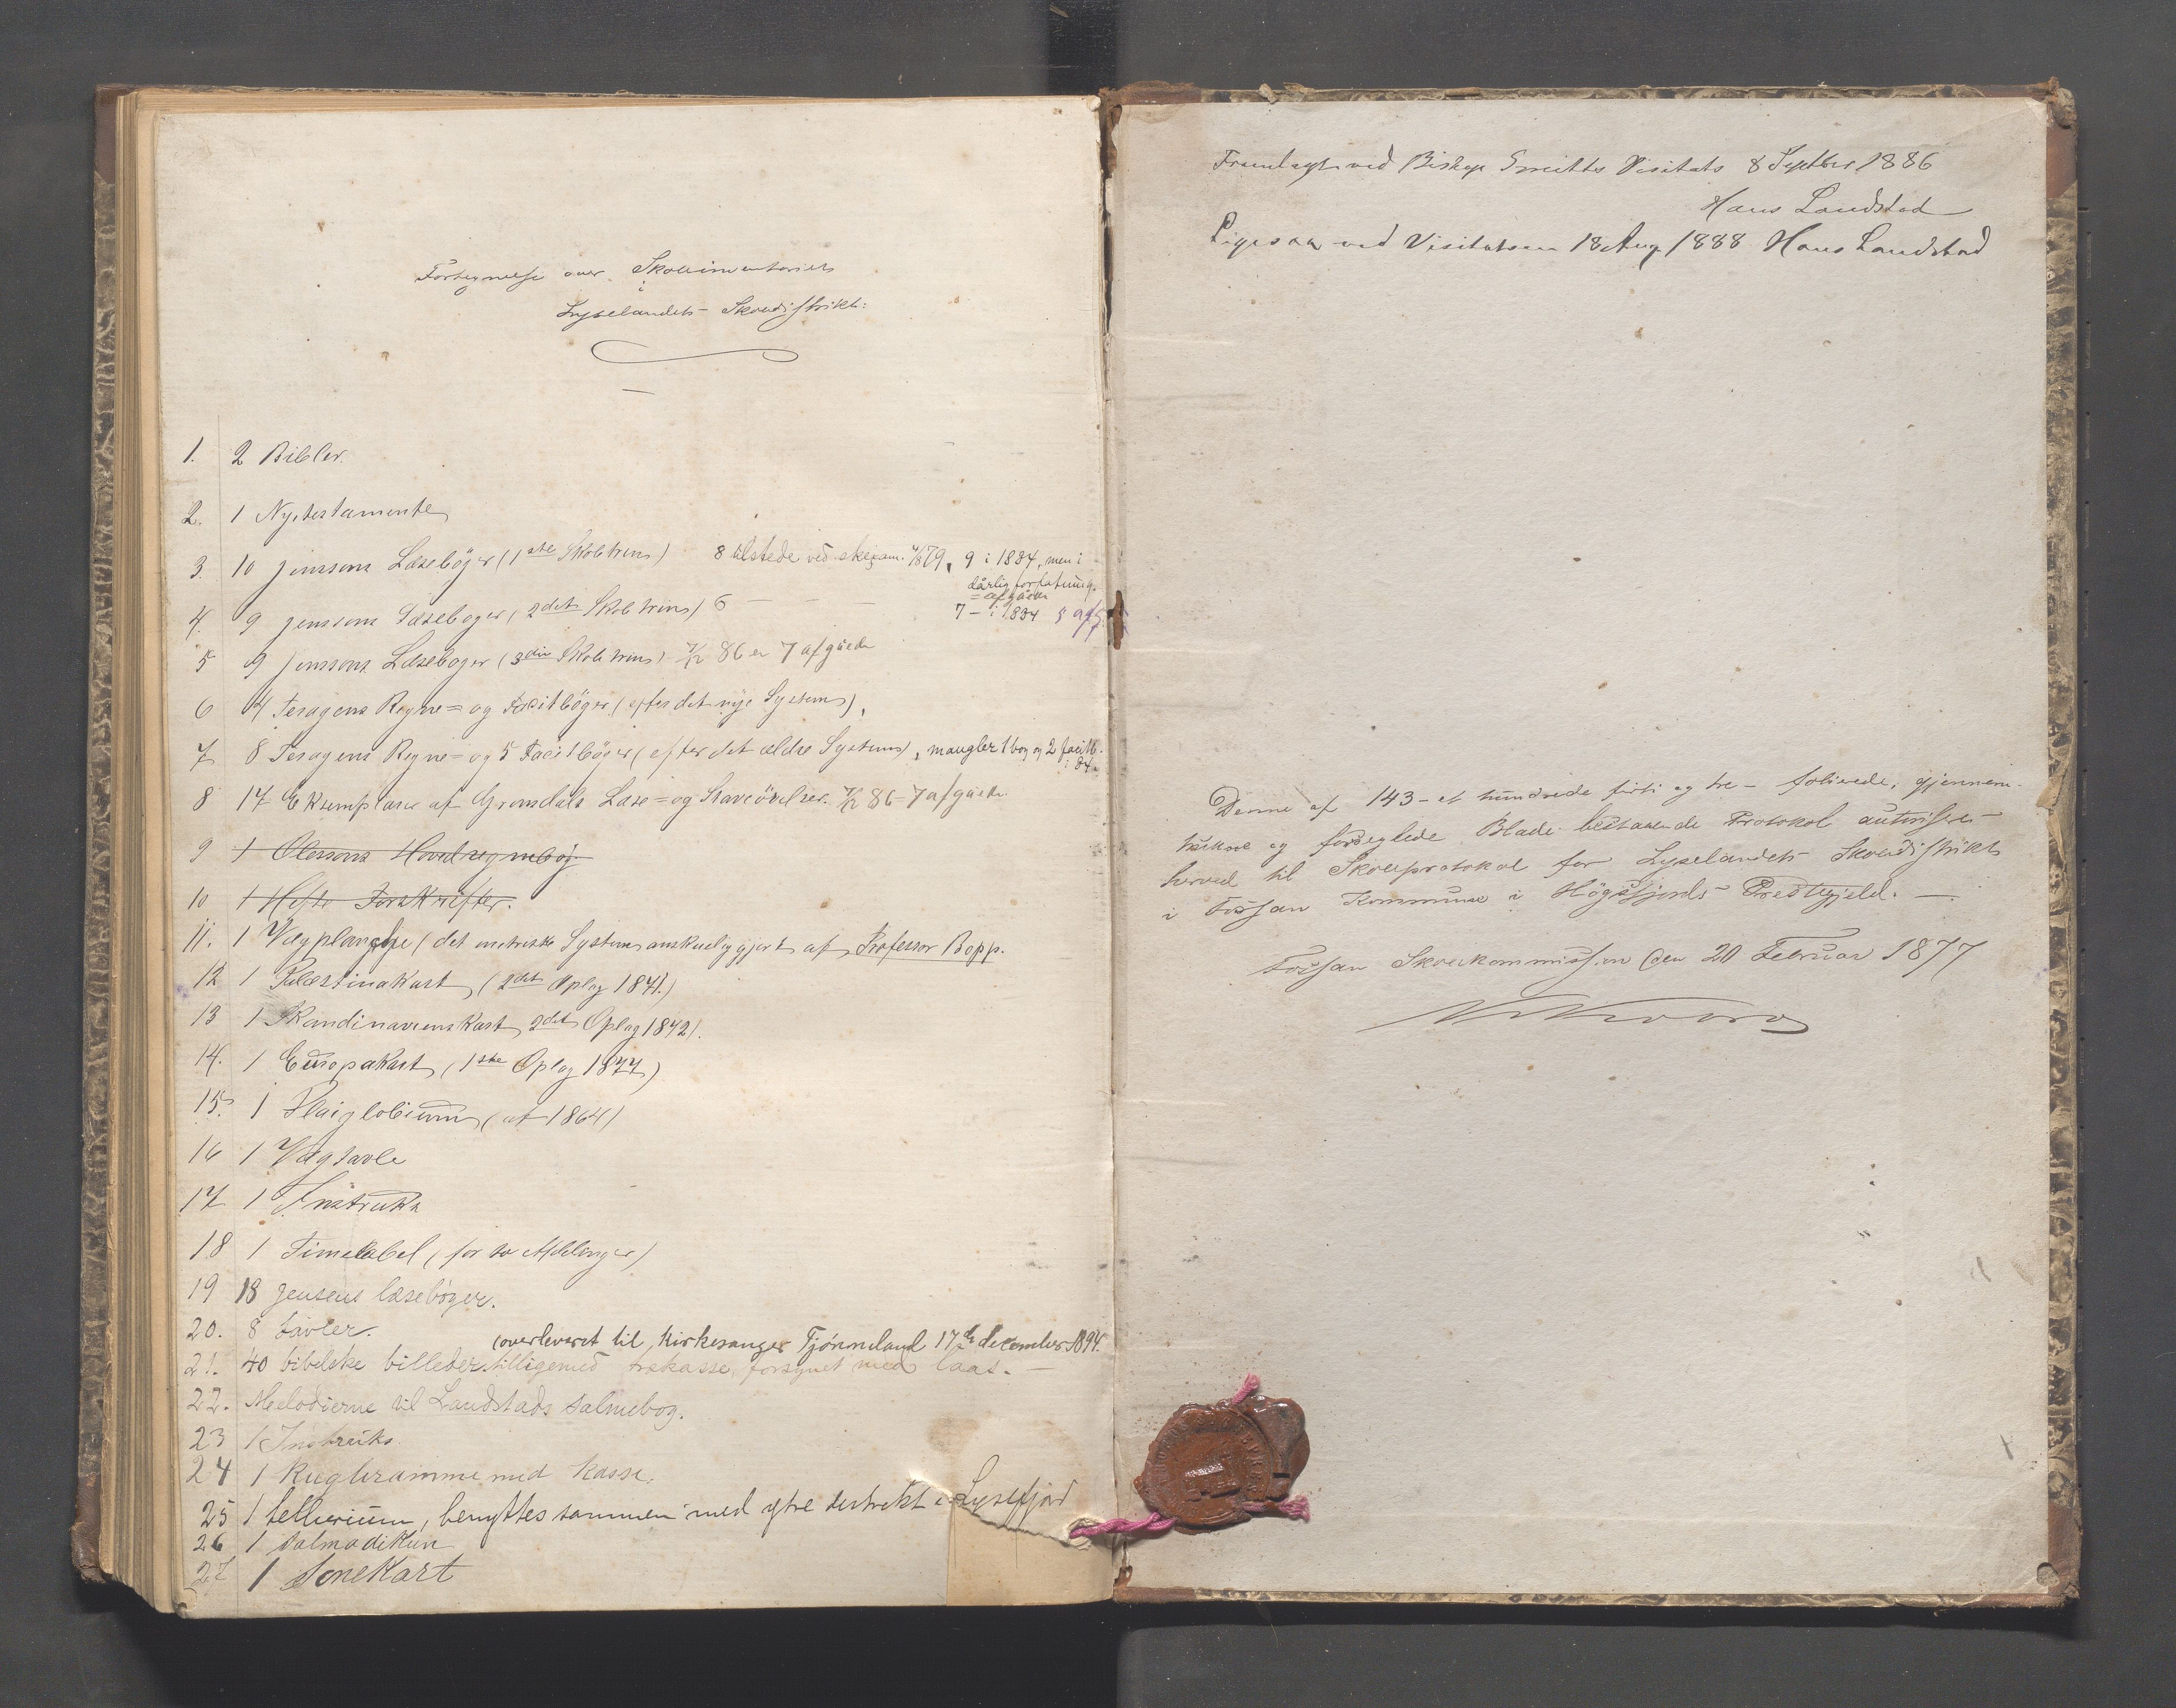 Fortegnelse over Skoleinventariet
i
Lyselandets Skoledistrikt:
1. 2 Bibler.
2. 1 Nytestamente
3. 10 Jensens Læsebøger (1ste Skoletrin) 8 tilstede ved skexam. 79, 9 i 1884, men i
dårlig forfatning.
= afgåede
4. 9 Jensens Læsebøger (2det Skoletrin) 6 — — — 7 – i 1884
5 9 Jensens Læsebøger (3die Skoletrin) 7/12 86 er 7 afgåede
6 4 Regne= og Facitbøger (efter det nye System),
7 8 Regne= og 5 Facitbøger (efter det ældre System), mangler 1 bog og 2 facitb.
i 84.
8 17 Eksemplarer af Læse= og Staveövelser. 7/12 86 – 7 afgåede.
9 1 Olesens Hovedregnebog
10 1 Hefte Forskrifter.
11. 1 Vægplanche (det metriske System anskueliggjort af Professor Bopp.
12 1 Palæstinakart, (2det Oplag 1871.)
13 1 Skandinaviens Kart, 2det Oplag 1872).
14. 1 Europakart, (1ste Oplag 1877)
15. 1 Planiglobium, (af 1864)
16 1 Vægtavle
17 1 Instruks
18 1 Timetabel (for to Afdelinger)
19 18 Jensens læsebøger.
20. 8 tavler.
(overleveret til Kirkesanger Tjønneland 17de december 1894.
21. 40 bibelske billeder tilligemed trækasse, forsynet med laas. —
22. Melodierne til Landstads salmebog.
23 1 Instruks.
24 1 Kugleramme med kasse.
25 1 tellurium, benyttes sammen med ytre distrikt i Lysefjord
26 1 salmodikon
27 1 Sonekart
Fremlagt ved Biskop Smitts Visitats 8 Septber 1886
Hans Landstad
Ligesaa ved Visitatsen 18 Aug 1888 Hans Landstad
Denne af 143 – et hundrede firti og tre – folierede, gjennem-
trukne og forseglede Blade bestaaende Protokol autoriseres
herved til Skoleprotokol for Lyselandets Skoledistrikt
i Fossan Kommune i Högsfjords Prestegjeld. —
Fossan Skolekommission den 20 Februar 1877